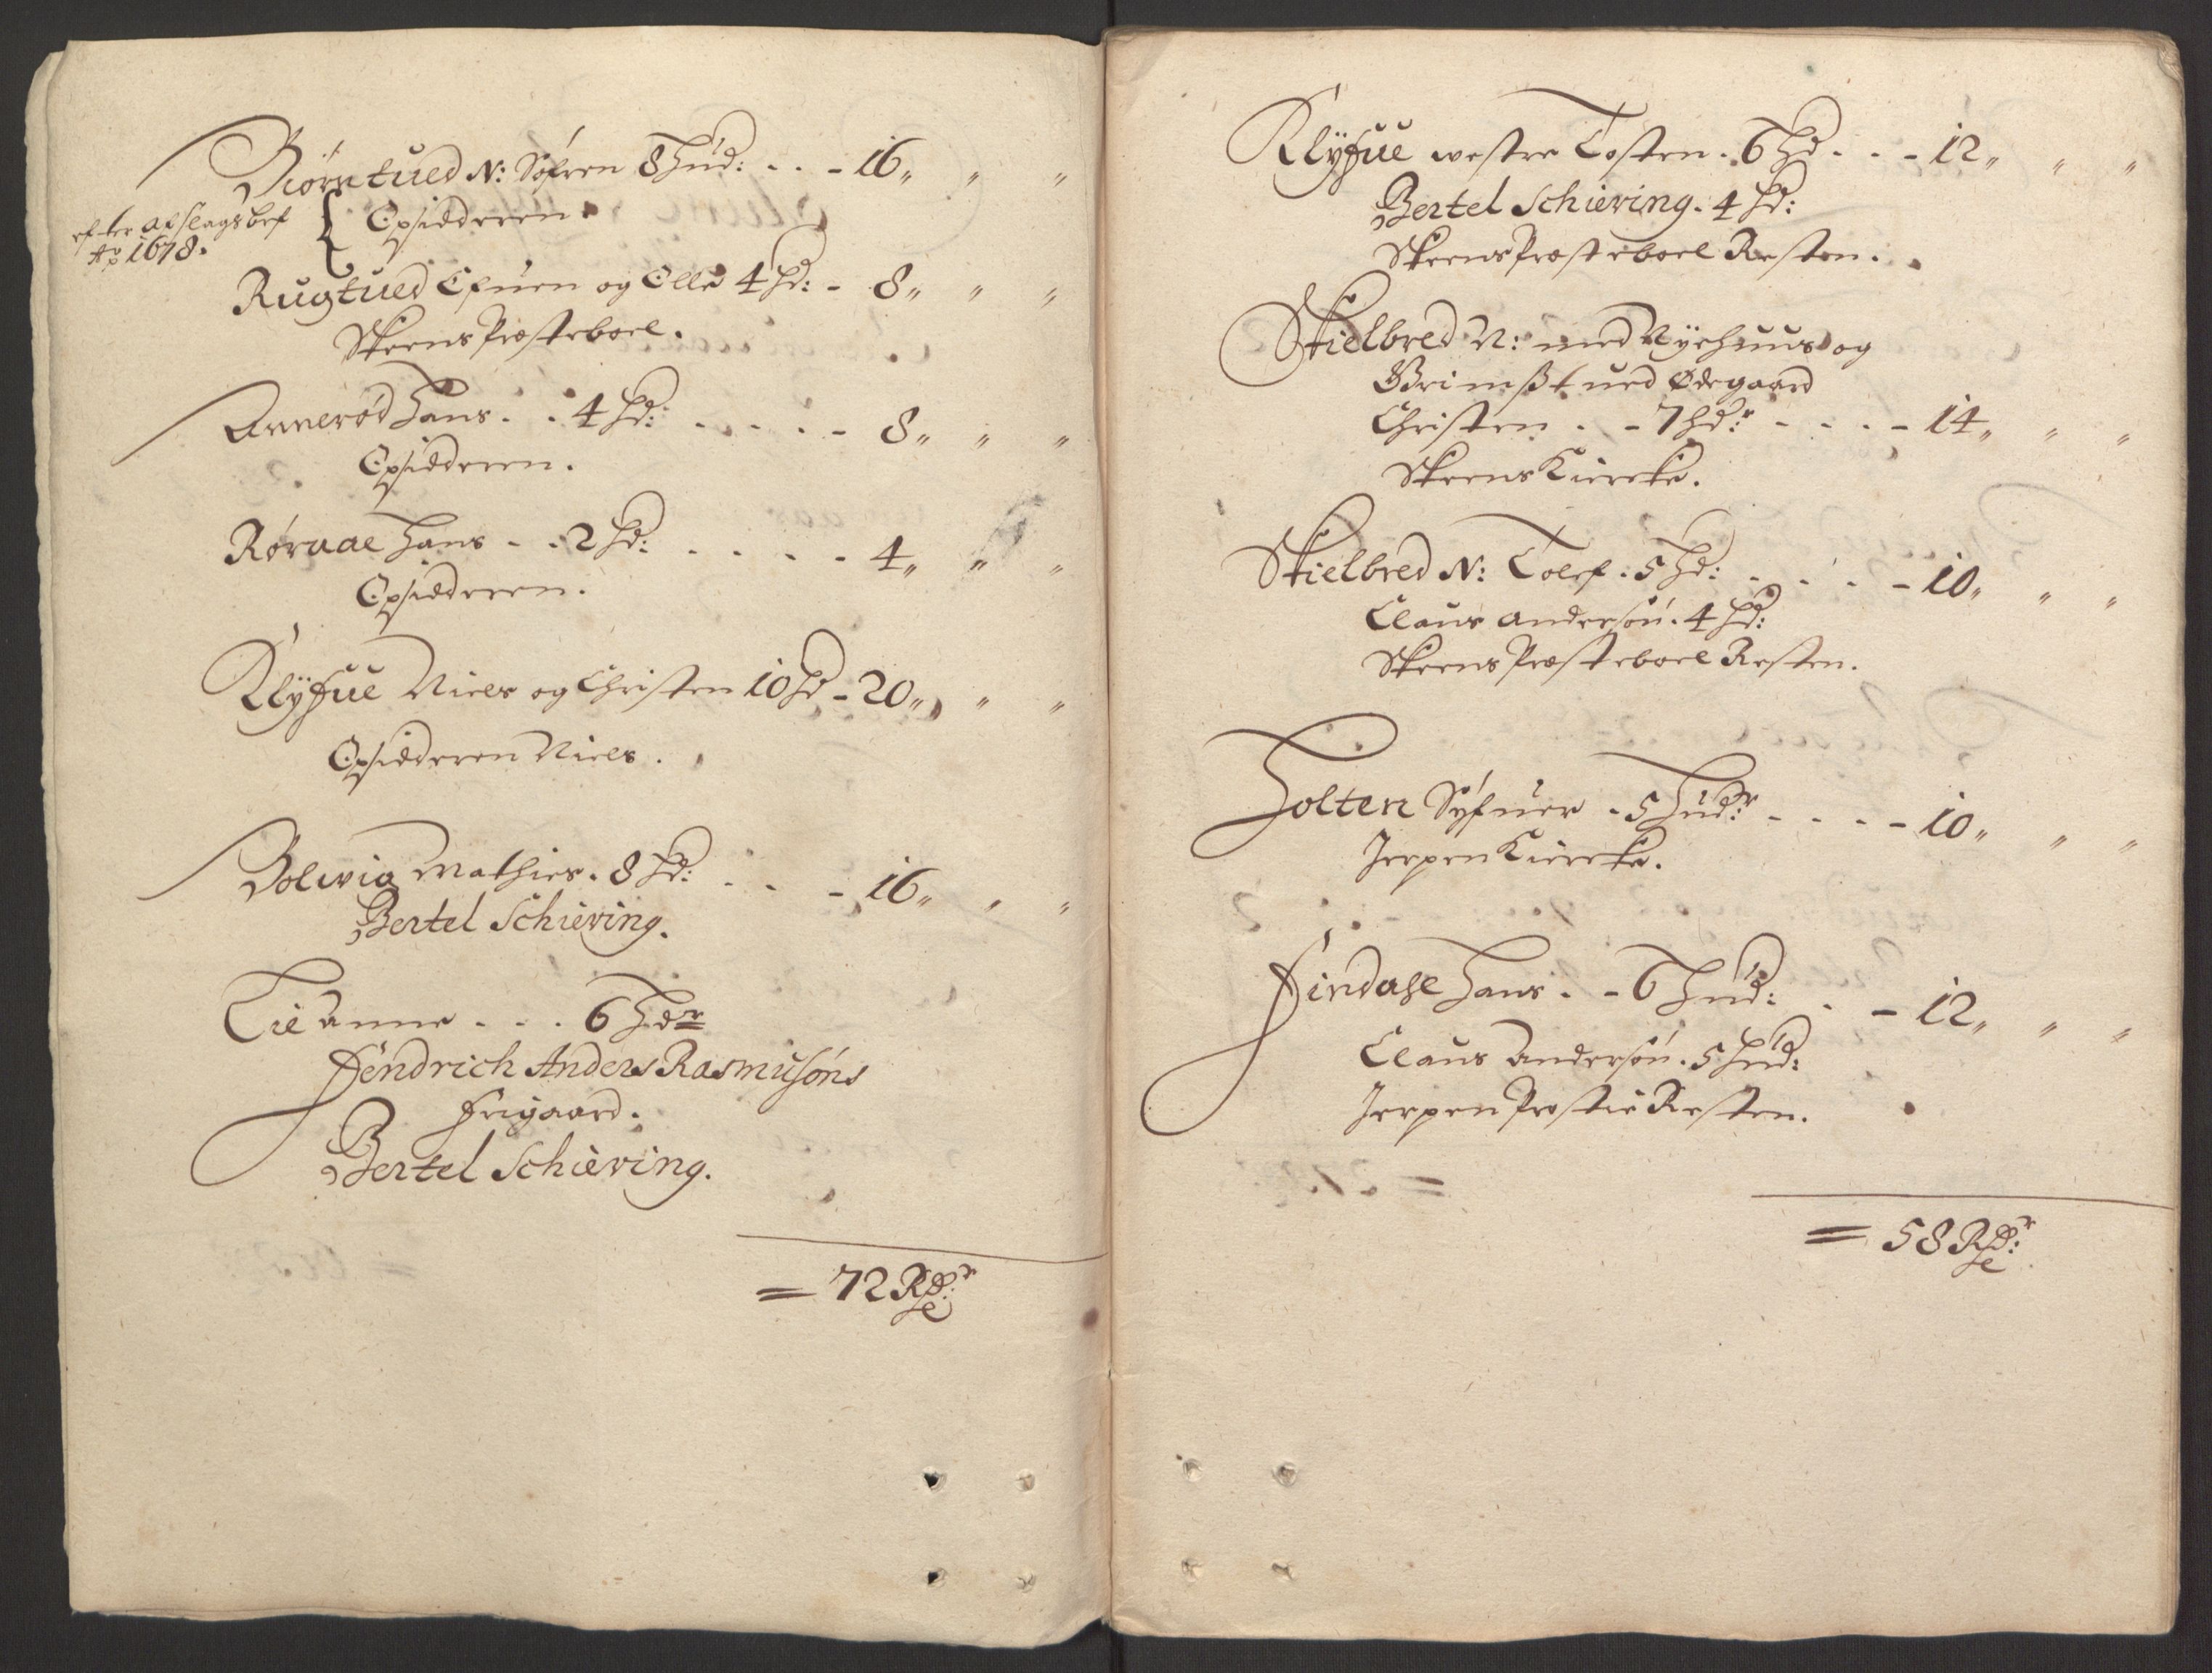 Biørntued N: Søfren 8 Hud: . . - 16 " " "
efter afslags bef
Ao 1678.
Opsidderen.
Rugtued Efuen og Olle 4 Hd: - 8 " " "
Skeens Præsteboel.
Arnerød Hans . . 4 Hd: . . . . - 8 " " "
Opsidderen.
Røraae Hans - . 2 Hd: . . . . - 4 " " "
Opsidderen.
Klyfue Niels og Christen 10 Hd - 20 " " "
Opsidderen Niels.
Bolwig Mathies. 8 Hd: . . - 16 " " "
Bertel Schiering.
Lie Anne . . . 6 Hdr
Hendrich Anders Rasmusøns
Frigaard.
Bertel Schiering.
= 72 Rdr
Klyfue westre Tosten. 6 Hd . . - 12 " " "
Bertel Schiering. 4 Hd:
Skeens Præsteboel Resten.
Skielbred N: med Nyehuus og
Grimßtued Ødegaard
Christen . . - 7 Hdr . . . - 14 " " "
Skeens Kiercke.
Skielbred N: Tolef . 5 Hd: . . . - 10 " " "
Claus Andersøn. 4 Hd:
Skeens Præsteboel Resten.
Holten Syfuer - 5 Hudr . . . - 10 " " "
Jerpen Kiercke.
Findahl Hans . - 6 Hud: . - 12 " " "
Claus Andersøn. 5 Hud:
Jerpen Præstie Resten.
= 58 Rdr